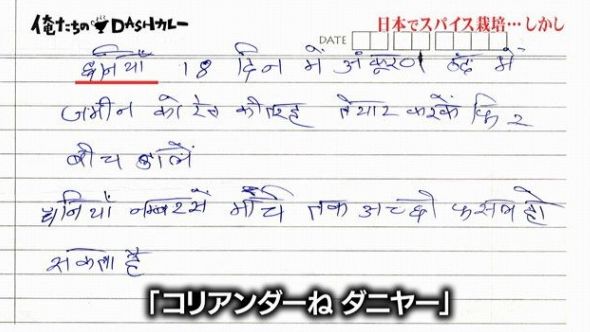 俺たちの DASHカレー
日本でスパイス栽培…しかし
DATE
धनियाँ 18 दिन में अंकुरण ठंढ में
जमीन को रेत की तरह तैयार करकें फिर
बीच डालें
धनियाँ नम्बर सें मार्च तक अच्छी फसल हो
सकता है
「コリアンダーね ダニヤー」